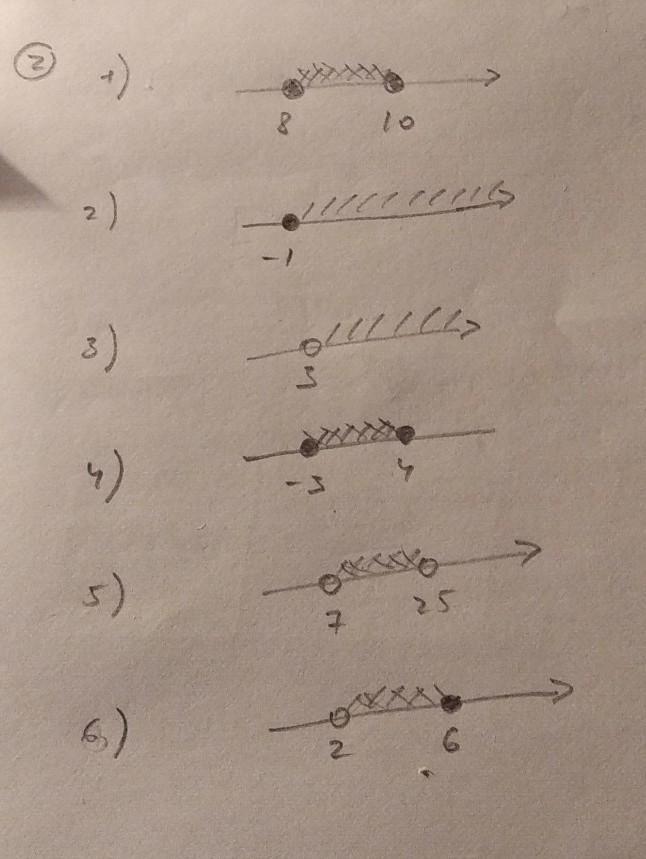 2
1)
8 10
2)
-1
3)
3
4)
-3 4
5)
7 25
6)
2 6